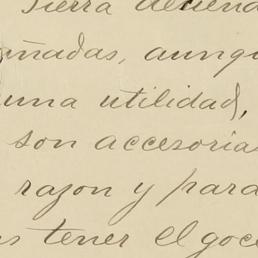 Tierra
añadas, aunqu
una utilidad,
son accesorias
razon y para
tener el goce